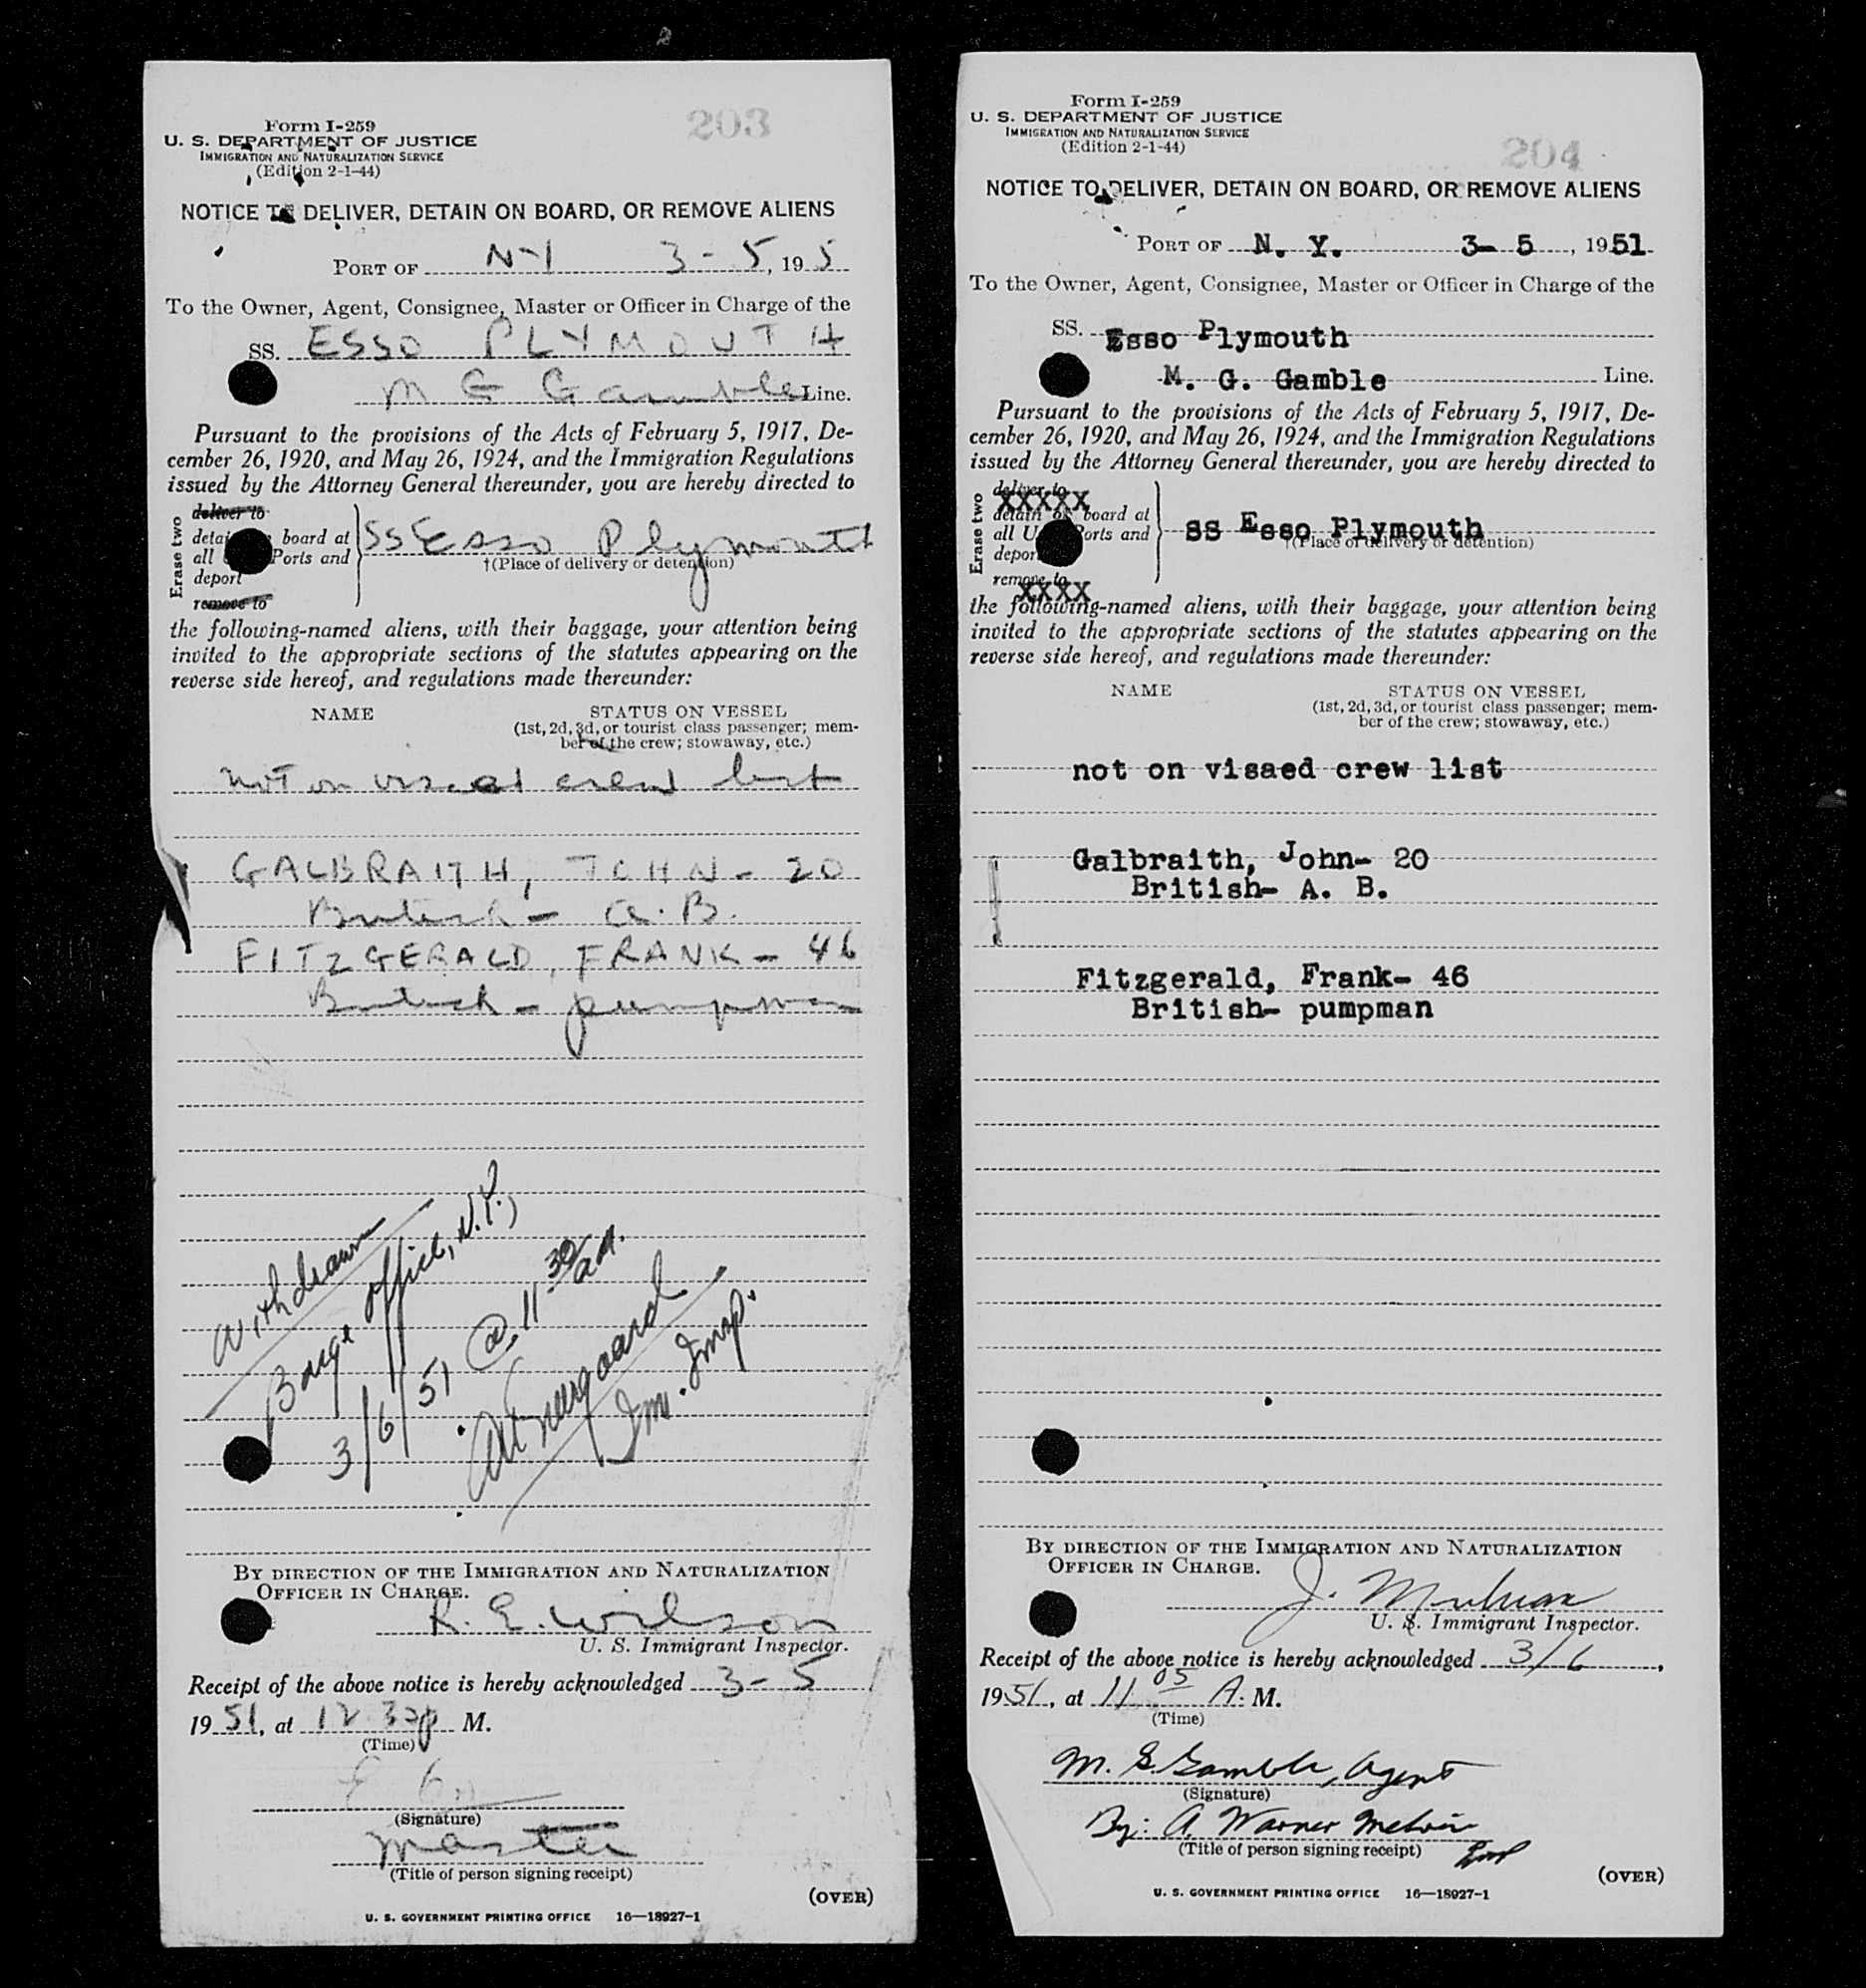 203
Form I-259
U. S. DEPARTMENT OF JUSTICE
IMMIGRATION AND NATURALIZATION SERVICE
(Edition 2-1-44)
NOTICE TO DELIVER, DETAIN ON BOARD, OR REMOVE ALIENS
PORT OF N-Y 3-5, 195
To the Owner, Agent, Consignee, Master or Officer in Charge of the
SS. ESSO PLYMOUTH
M G Gamble Line.
Pursuant to the provisions of the Acts of February 5, 1917, De-
cember 26, 1920, and May 26, 1924, and the Immigration Regulations
issued by the Attorney General thereunder, you are hereby directed to
Erase two
deliver to
board at
all Ports and
deport
remove to
SS Esso Plymouth
†(Place of delivery or detention)
the following-named aliens, with their baggage, your attention being
invited to the appropriate sections of the statutes appearing on the
reverse side hereof, and regulations made thereunder:
NAME STATUS ON VESSEL
(1st, 2d, 3d, or tourist class passenger; mem-
ber of the crew; stowaway, etc.)
not on visaed crew list
GALBRAITH, JOHN - 20
British - A.B.
FITZGERALD, FRANK - 46
British - pumpman
Withdrawn
Barge Office, N.Y.,
3/6/51 @ 11 30 A.M.
Im. Insp.
BY DIRECTION OF THE IMMIGRATION AND NATURALIZATION
OFFICER IN CHARGE.
R. E. Wilson
U. S. Immigrant Inspector.
Receipt of the above notice is hereby acknowledged 3-5
1951, at 12 30p M.
(Time)
(Signature)
Master
(Title of person signing receipt)
(OVER)
U. S. GOVERNMENT PRINTING OFFICE 16—18927-1
204
Form I-259
U. S. DEPARTMENT OF JUSTICE
IMMIGRATION AND NATURALIZATION SERVICE
(Edition 2-1-44)
NOTICE TO DELIVER, DETAIN ON BOARD, OR REMOVE ALIENS
PORT OF N. Y. 3- 5, 1951
To the Owner, Agent, Consignee, Master or Officer in Charge of the
SS. Esso Plymouth
M. G. Gamble Line.
Pursuant to the provisions of the Acts of February 5, 1917, De-
cember 26, 1920, and May 26, 1924, and the Immigration Regulations
issued by the Attorney General thereunder, you are hereby directed to
Erase two
deliver to
XXXXX
detain on board at
all U Ports and
depor
remove to
XXXX
SS Esso Plymouth
†(Place of delivery or detention)
the following-named aliens, with their baggage, your attention being
invited to the appropriate sections of the statutes appearing on the
reverse side hereof, and regulations made thereunder:
NAME STATUS ON VESSEL
(1st, 2d, 3d, or tourist class passenger; mem-
ber of the crew; stowaway, etc.)
not on visaed crew list
Galbraith, John- 20
British- A. B.
Fitzgerald, Frank- 46
British- pumpman
BY DIRECTION OF THE IMMIGRATION AND NATURALIZATION
OFFICER IN CHARGE.
J.
U. S. Immigrant Inspector.
Receipt of the above notice is hereby acknowledged 3/6,
1951, at 11 05 A. M.
(Time)
M. G. Gamble, Agent
(Signature)
By: A Warner
(Title of person signing receipt)
(OVER)
U. S. GOVERNMENT PRINTING OFFICE 16—18927-1